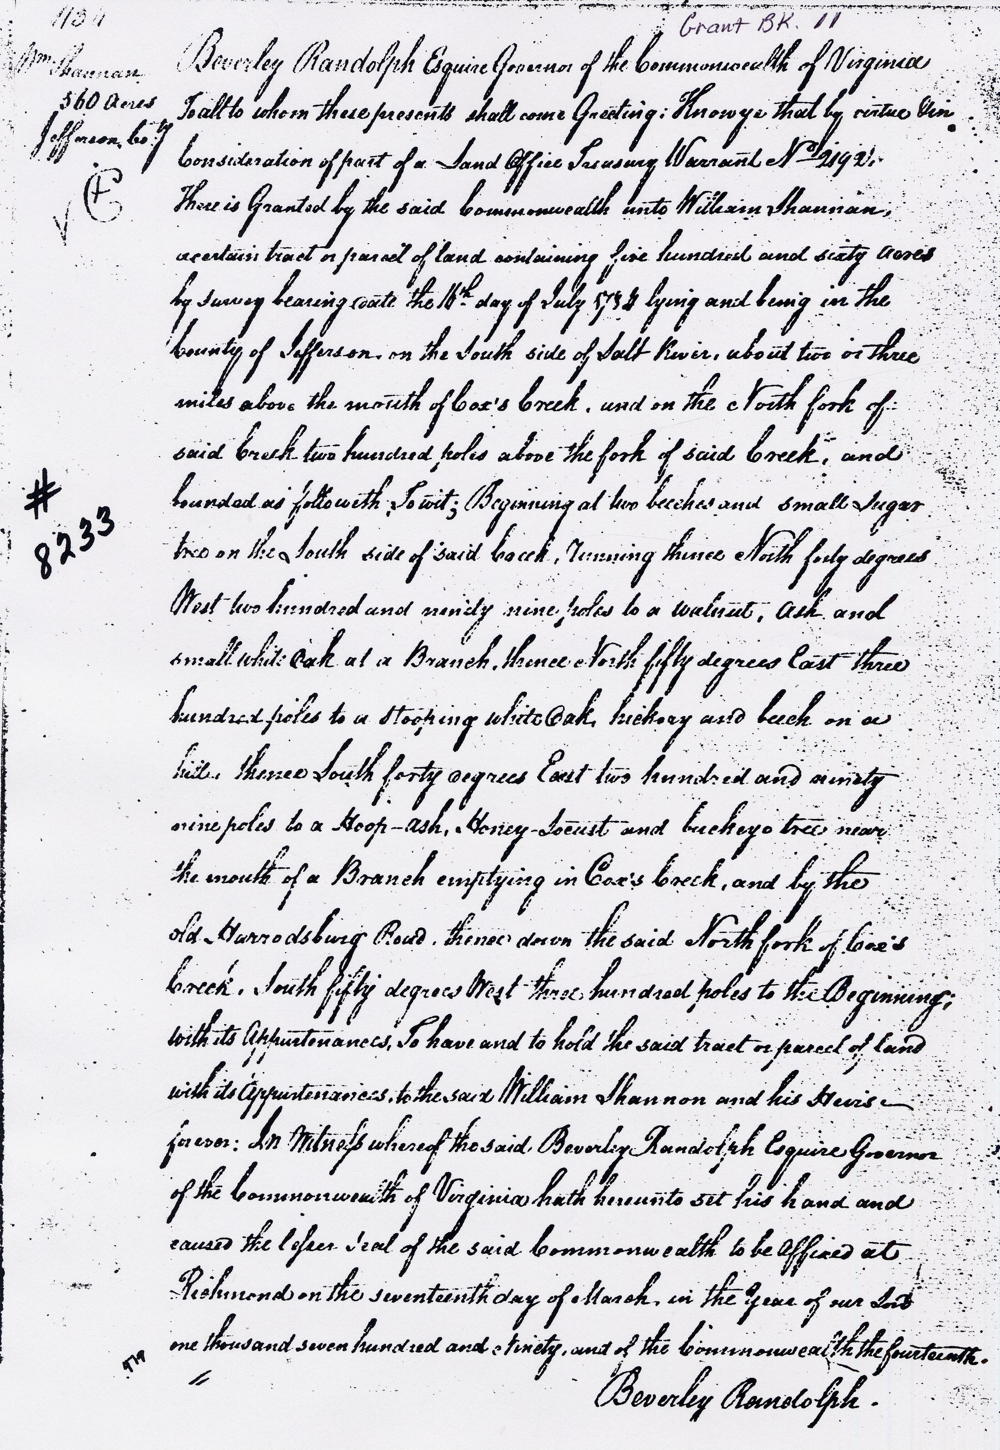 Grant BK. 11
Wm Shannan
560 Acres
Jefferson Co:ty
#
8233
Beverley Randolph Esquire Governor of the Commonwealth of Virginia
To all to whom these presents shall come Greeting: Know ye that by virtue & in
Consideration of part of a Land Office Treasury Warrant No 2192.
There is Granted by the said Commonwealth unto William Shannan,
a certain tract or parcel of land containing five hundred and sixty Acres
by survey bearing date the 16th day of July lying and being in the
County of Jefferson on the South side of Salt River, about two or three
miles above the mouth of Cox's Creek, and on the North fork of
said Creek two hundred poles above the fork of said Creek, and
bounded as followith, Towit; Beginning at two beeches and small Sugar
tree on the South side of said Creek, running thence North forty degrees
West two hundred and ninety nine poles to a walnut, Ash and
small white Oak at a Branch, thence North fifty degrees East three
hundred poles to a stooping white Oak, hickory and beech on a
hill, thence South forty degrees East two hundred and ninety
nine poles to a Hoop-ash, Honey-Locust and buckeye tree near
the mouth of a Branch emptying in Cox's Creek, and by the
old Harrodsburg Road, thence down the said North fork of Cox's
Creek, South fifty degrees West three hundred poles to the Beginning;
with its Appurtenances, To have and to hold the said tract or parcel of land
with its Appurtenances, to the said William Shannon and his Heirs
forever: In Witness whereof the said Beverley Randolph Esquire Governor
of the Commonwealth of Virginia hath hereunto set his hand and
caused the lesser Seal of the said Commonwealth to be Affixed at
Richmond on the seventeenth day of March, in the Year of our Lord
one thousand seven hundred and Ninety, and of the Commonwealth the fourteenth.
Beverley Randolph.